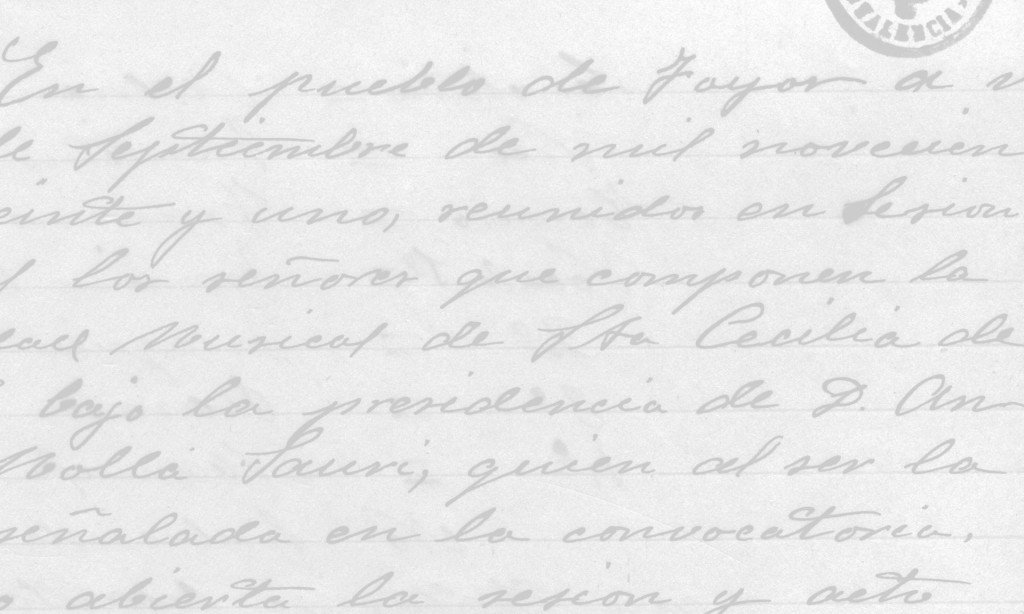 VALENCIA
En el pueblo de Foyos a v
de Septiembre de mil novecien
einte y uno, reunidos en Sesion
los señores que componen la
dad Musical de Sta Cecilia de
bajo la presidencia de D. An
Molla Sauri, quien al ser la
señalada en la convocatoria,
abierta la sesion y acto